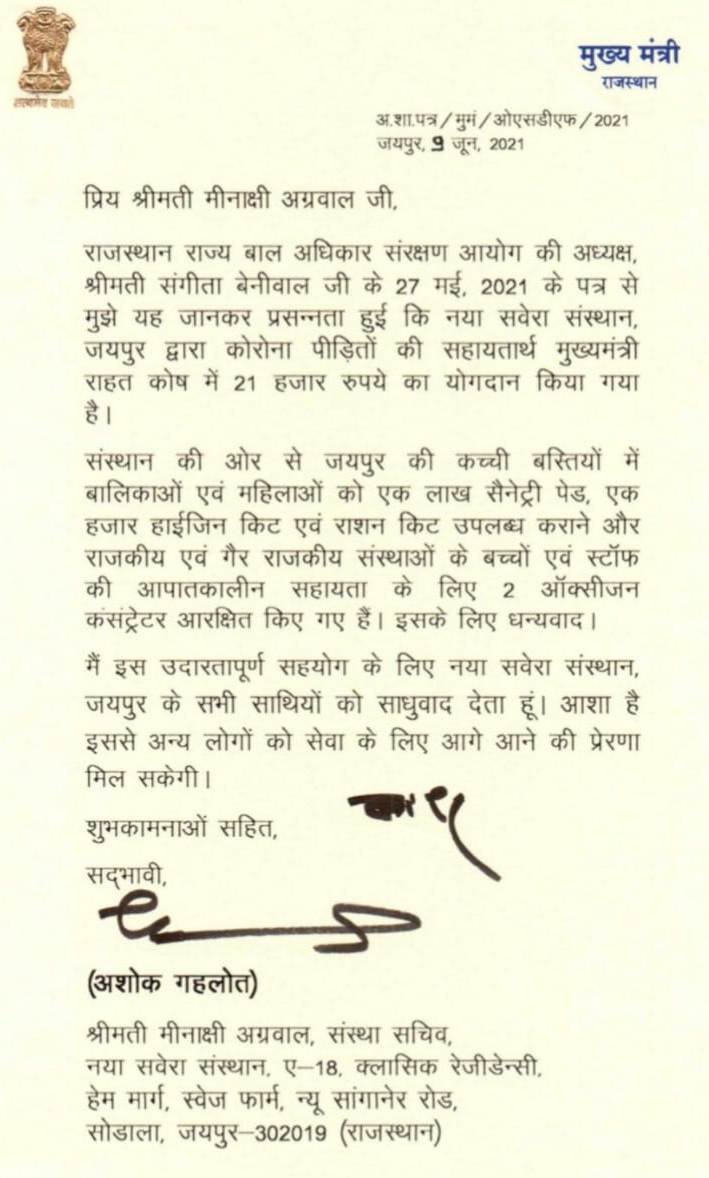 सत्यमेव जयते
मुख्य मंत्री
राजस्थान
अ.शा.पत्र/मुमं/ओएसडीएफ/2021
जयपुर, 9 जून, 2021
प्रिय श्रीमती मीनाक्षी अग्रवाल जी,
राजस्थान राज्य बाल अधिकार संरक्षण आयोग की अध्यक्ष,
श्रीमती संगीता बेनीवाल जी के 27 मई, 2021 के पत्र से
मुझे यह जानकर प्रसन्नता हुई कि नया सवेरा संस्थान,
जयपुर द्वारा कोरोना पीड़ितों की सहायतार्थ मुख्यमंत्री
राहत कोष में 21 हजार रुपये का योगदान किया गया
है।
संस्थान की ओर से जयपुर की कच्ची बस्तियों में
बालिकाओं एवं महिलाओं को एक लाख सैनेट्री पेड, एक
हजार हाईजिन किट एवं राशन किट उपलब्ध कराने और
राजकीय एवं गैर राजकीय संस्थाओं के बच्चों एवं स्टॉफ
की आपातकालीन सहायता के लिए 2 ऑक्सीजन
कंसंट्रेटर आरक्षित किए गए हैं। इसके लिए धन्यवाद।
मैं इस उदारतापूर्ण सहयोग के लिए नया सवेरा संस्थान,
जयपुर के सभी साथियों को साधुवाद देता हूं। आशा है
इससे अन्य लोगों को सेवा के लिए आगे आने की प्रेरणा
मिल सकेगी।
शुभकामनाओं सहित,
सद्भावी,
(अशोक गहलोत)
श्रीमती मीनाक्षी अग्रवाल, संस्था सचिव,
नया सवेरा संस्थान, ए–18, क्लासिक रेजीडेन्सी,
हेम मार्ग, स्वेज फार्म, न्यू सांगानेर रोड,
सोडाला, जयपुर–302019 (राजस्थान)